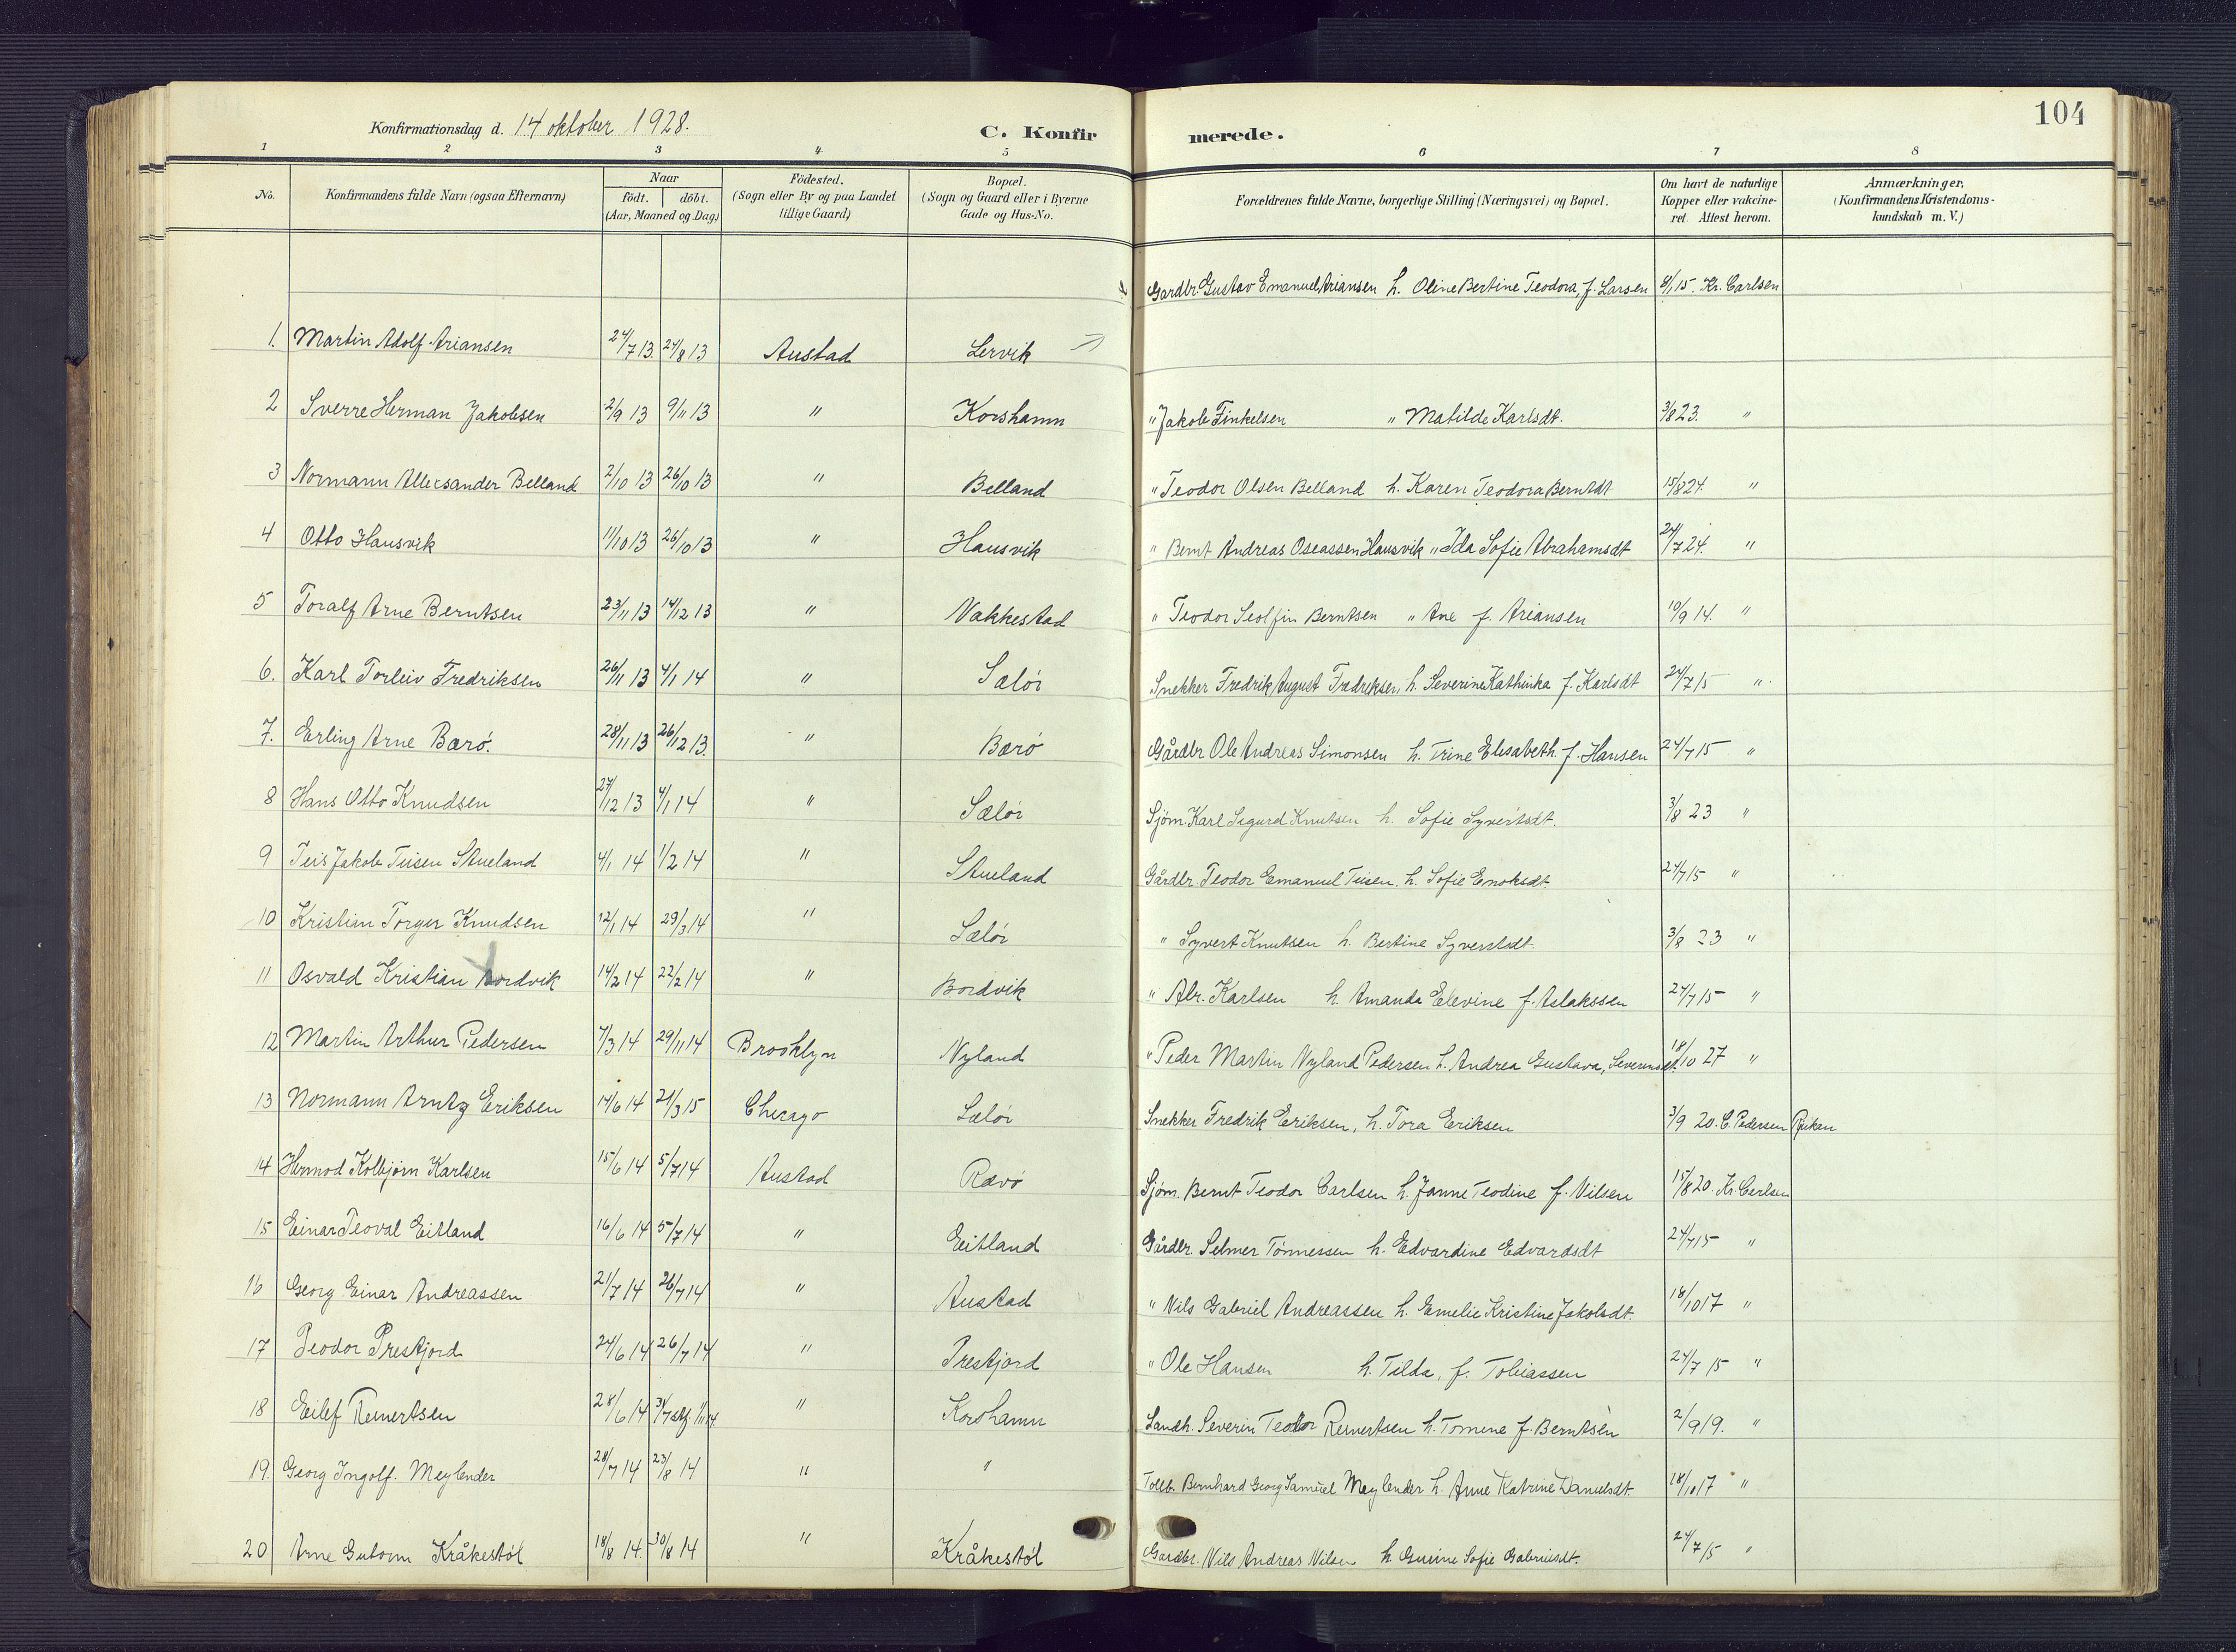 104
Konfirmationsdag d. 14 oktober 1928.
C. Konfir merede.
1 2 3 4 5 6 7 8
No.
Konfirmandens fulde Navn (ogsaa Efternavn)
Naar
födt. döbt.
(Aar, Maaned og Dag)
Födested.
(Sogn eller By og paa Landet
tillige Gaard)
Bopæl.
(Sogn og Gaard eller i Byerne
Gade og Hus-No.
Forældrenes fulde Navne, borgerlige Stilling (Næringsvei) og Bopæl.
Om havt de naturlige
Kopper eller vakcine-
ret. Attest herom.
Anmærkninger,
(Konfirmandens Kristendoms-
kundskab m. V.)
Gardbr. Gustav Emanuel Ariansen h. Oline Bertine Teodora, f. Larsen 4/1 15. Kr. Carlsen
1. Martin Adolf Ariansen 24/7 13. 24/8 13 Austad Lervik
2 Sverre Herman Jakobsen 2/9 13 9/11 13 " Korshamn " Jakob Finkelsen " Matilde Karlsdt. 3/8 23. "
3 Normann Alleksander Belland 2/10 13 26/10 13 " Belland " Teodor Olsen Belland h. Karen Teodora Berntdt 15/8 24. "
4 Otto Hausvik 11/10 13 26/10 13 " Hausvik " Bernt Andreas Oseassen Hausvik " Ida Sofie Abrahamsdt 24/7 24. "
5 Toralf Arne Berntsen 23/11 13 14/12 13 " Vakkestad " Teodor Seolfin Berntsen " Ane f. Ariansen 10/9 14. "
6. Karl Torleiv Fredriksen 26/11 13 4/1 14 " Sælör Snekker Fredrik August Fredriksen, h. Severine Kathinka f. Karlsdt 24/7 15 "
7. Erling Arne Barö. 28/11 13 26/12 13. " Barö Gårdbr Ole Andreas Simonsen h. Trine Elisabeth. f. Hansen 24/7 15 "
8 Hans Otto Knudsen 27/12 13 4/1 14 " Sælör Sjöm. Karl Sigurd Knutsen h. Sofie Syvertsdt. 3/8 23 "
9 Teis Jakob Teisen Stueland 4/1 14 1/2 14 " Stueland Gårdbr Teodor Emanuel Teisen. h. Sofie Enoksdt. 24/7 15 "
10 Kristian Torger Knudsen 12/1 14 29/3 14 " Sælör " Syvert Knutsen h. Bertine Syvertsdt. 3/8 23 "
11 Osvald Kristian Bordvik 14/2 14 22/2 14 " Bordvik " Abr. Karlsen h. Amanda Elevine f. Aslakssen 24/7 15 "
12 Martin Arthur Pedersen 7/3 14 29/11 14 Brooklyn Nyland " Peder Martin Nyland Pedersen h. Andrea Gustava, Severinsdt. 18/10 27 "
13 Normann Arntz Eriksen 14/6 14 21/3 15 Chicago Sælör Snekker Fredrik Eriksen, h. Tora Eriksen 3/9 20. C. Pedersen Röiken
14 Hermod Kolbjörn Karlsen 15/6 14 5/7 14 Austad Rævö Sjöm. Bernt Teodor Carlsen h. Janne Teodine f. Nilsen 15/8 20. Kr. Carlsen
15 Einar Teoval Eitland 16/6 14 5/7 14 " Eitland Gårdbr. Selmer Tönnessen h. Edvardine Edvardsdt 24/7 15 "
16 Georg Einar Andreassen 21/7 14 26/7 14 " Austad " Nils Gabriel Andreassen h. Emelie Kristine Jakobsdt. 18/10 17 "
17 Teodor Prestjord 24/6 14 26/7 14 " Prestjord " Ole Hansen h. Tilda, f. Tobiassen 24/7 15 "
18 Eilef Reinertsen 28/6 14 " Korshamn Landh. Severin Teodor Reinertsen h. Tomine f. Berntsen 2/9 19. "
19. Georg Ingolf. Meylender 28/7 14 23/8 14 " " Tollb. Bernhard Georg Samuel Meylender h. Anne Katrine Danielsdt. 18/10 17 "
20 Arne Gutorm Kråkestöl 18/8 14. 30/8 14 " Kråkestöl Gardbr. Nils Andreas Nilsen h Gurine Sofie Gabrielsdt. 24/7 15 "